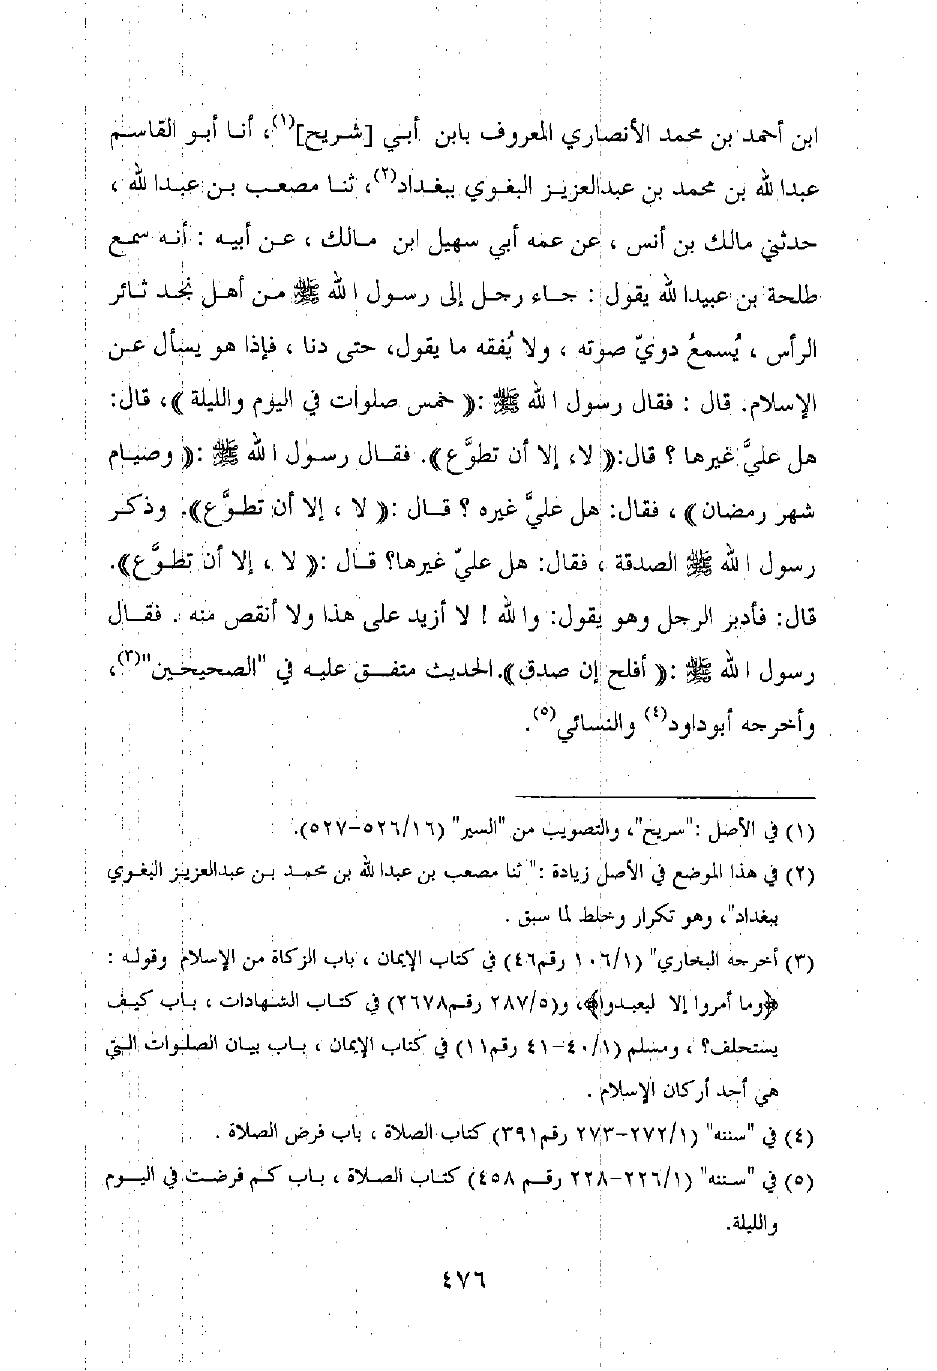 ابن أحمد بن محمد الأنصاري المعروف بابن أبي [شريح](١)، أنا أبو القاسم
عبدا لله بن محمد بن عبدالعزيز البغوي ببغداد(٢)، ثنا مصعب بن عبدا لله ،
حدثني مالك بن أنس ، عن عمه أبي سهيل ابن مالك ، عن أبيه : أنه سمع
طلحة بن عبيدا لله يقول : جاء رجل إلى رسول ا لله ﷺ من أهل نجد ثائر
الرأس ، يُسمعُ دويّ صوته ، ولا يُفقه ما يقول، حتى دنا ، فإذا هو يسأل عن
الإسلام. قال : فقال رسول ا لله ﷺ :(( خمس صلوات في اليوم والليلة ))، قال:
هل عليَّ غيرها ؟ قال:(( لا، إلا أن تطوَّع)). فقال رسول ا لله ﷺ :(( وصيام
شهر رمضان )) ، فقال: هل عليَّ غيره ؟ قال :(( لا ، إلا أن تطوَّع)). وذكر
رسول ا لله ﷺ الصدقة ، فقال: هل عليّ غيرها؟ قال :(( لا ، إلا أن تطوَّع)).
قال: فأدبر الرجل وهو يقول: وا لله ! لا أزيد على هذا ولا أنقص منه . فقال
رسول ا لله ﷺ :(( أفلح إن صدق)). الحديث متفق عليه في "الصحيحين"(٣)،
وأخرجه أبوداود(٤) والنسائي(٥).
(١) في الأصل :"سريح"، والتصويب من "السير" (٥٢٦/١٦-٥٢٧).
(٢) في هذا الموضع في الأصل زيادة :" ثنا مصعب بن عبدا لله بن محمد بن عبدالعزيز البغوي
ببغداد"، وهو تكرار وخلط لما سبق .
(٣) أخرجه البخاري" (١٠٦/١ رقم٤٦) في كتاب الإيمان ، باب الزكاة من الإسلام وقوله :
﴿وما أمروا إلا ليعبدوا﴾، و(٢٨٧/٥ رقم٢٦٧٨) في كتاب الشهادات ، باب كيف
يستحلف؟ ، ومسلم (٤٠/١-٤١ رقم١١) في كتاب الإيمان ، باب بيان الصلوات التي
هي أحد أركان الإسلام .
(٤) في "سننه" (٢٧٢/١-٢٧٣ رقم٣٩١) كتاب الصلاة ، باب فرض الصلاة .
(٥) في "سننه" (٢٢٦/١-٢٢٨ رقم ٤٥٨) كتاب الصلاة ، باب كم فرضت في اليوم
والليلة.
٤٧٦